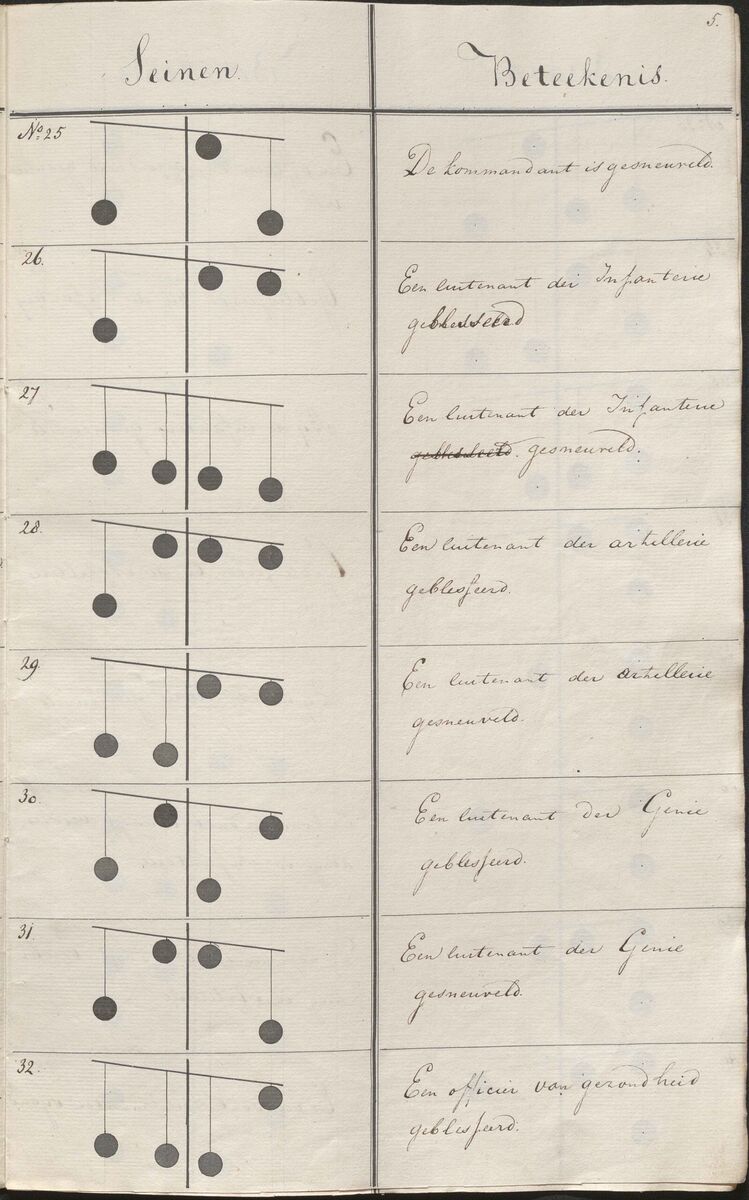 5.
Seinen.
Beteekenis.
No. 25
De kommandant is gesneuveld.
26.
Een luitenant der Infanterie
geblesseerd
27
Een luitenant der Infanterie
geblesseerd. gesneuveld.
28.
Een luitenant der artillerie
geblesseerd.
29.
Een luitenant der artillerie
gesneuveld.
30.
Een luitenant der Genie
geblesseerd.
31.
Een luitenant der Genie
gesneuveld.
32.
Een officier van gezondheid
geblesseerd.